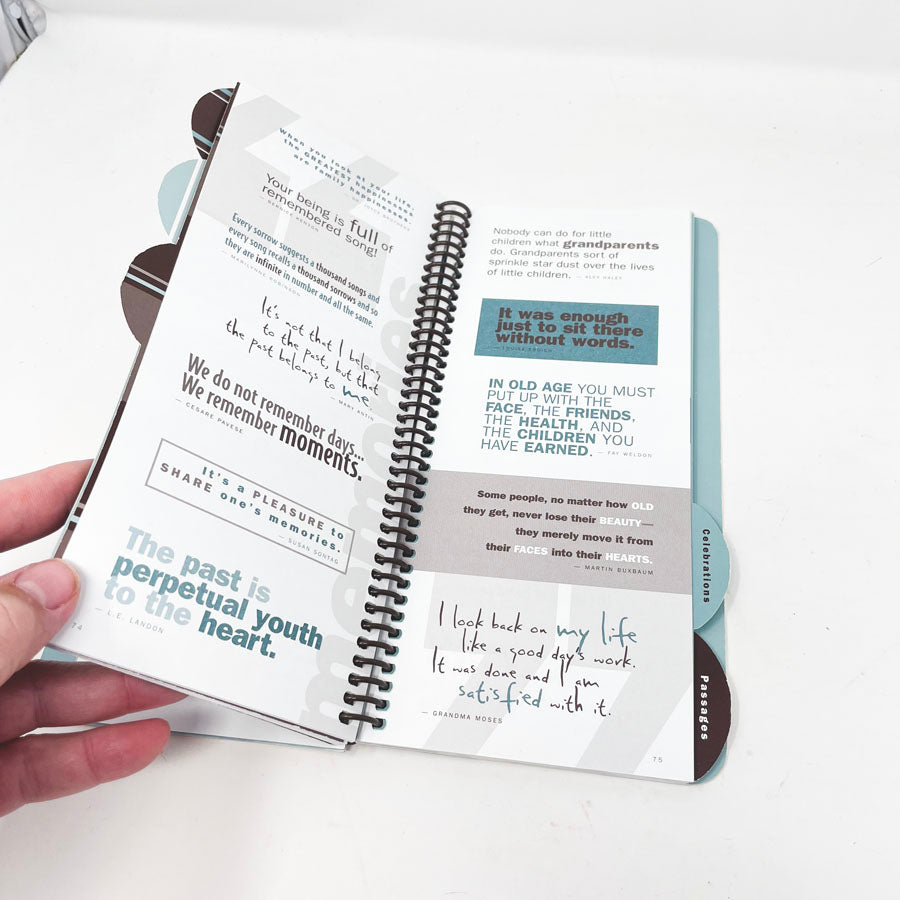 when you look at your life,
the GREATEST happinesses
are family happinesses.
Your being is full of
remembered song!
Every sorrow suggests a thousand songs and
every song recalls a thousand sorrows and so
they are infinite in number and all the same.
— MARILYNNE ROBINSON
It's not that I belong
to the past, but that
the past belongs to me.
— MARY ANTIN
We do not remember days...
We remember moments.
— CESARE PAVESE
It's a PLEASURE to
SHARE one's memories.
— SUSAN SONTAG
The past is
perpetual youth
to the heart.
— L.E. LANDON
memories
74
Nobody can do for little
children what grandparents
do. Grandparents sort of
sprinkle star dust over the lives
of little children. — ALEX HALEY
It was enough
just to sit there
without words.
— LOUISE ERDICH
IN OLD AGE YOU MUST
PUT UP WITH THE
FACE, THE FRIENDS,
THE HEALTH, AND
THE CHILDREN YOU
HAVE EARNED. — FAY WELDON
Some people, no matter how OLD
they get, never lose their BEAUTY—
they merely move it from
their FACES into their HEARTS.
— MARTIN BUXBAUM
I look back on my life
like a good day's work.
It was done and I am
satisfied with it.
— GRANDMA MOSES
75
Celebrations
Passages